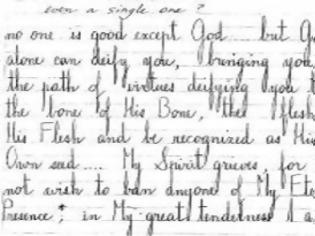 even a single one ?
no one is good except God .... but Go
alone can deify you, bringing you
the path of virtues deifying you t
the bone of His Bone, the flesh
His Flesh and be recognized as His
Own seed .... My Spirit grieves, for
not wish to ban anyone of My Ete
Presence ; in My great tenderness I a